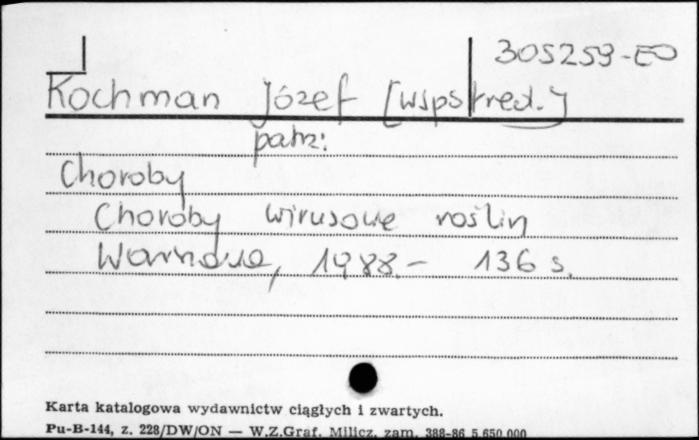 305259-EO
Kochman Józef [wspstred.]
patrz:
Choroby
Choroby wirusowe roślin
Warszawa, 1988.- 136 s.
Karta katalogowa wydawnictw ciągłych i zwartych.
Pu-B-144, z. 228/DW/ON — W.Z.Graf. Milicz, zam. 388-86 5.650.000